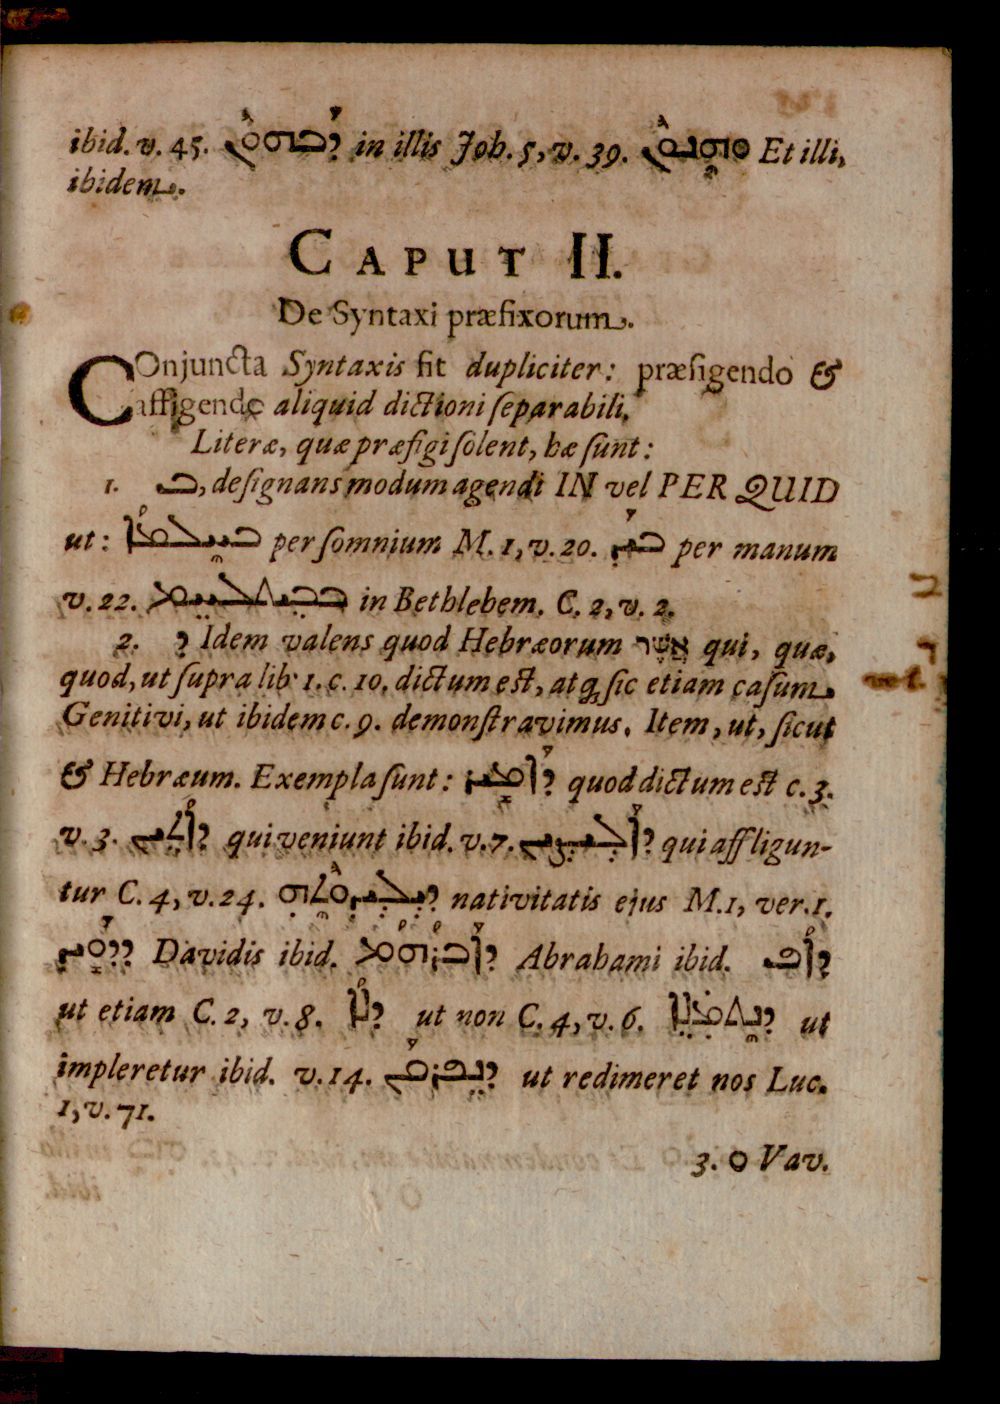 ibid. v. 45. in illis Joh. 5, v. 39. Et illi,
ibidem.
CAPUT II.
De Syntaxi præfixorum.
COnjuncta Syntaxis fit dupliciter: præfigendo &
affigendo aliquid dictioni separabili.
Literæ, quæ præfigi solent, hæ sunt:
1. ܒ, designans modum agendi IN vel PER QUID
ut: ܒܚܠܡܐ per somnium M. 1, v. 20. ܒܝܕ per manum
v. 22. in Bethlehem. C. 2, v. 2.
2. ܕ Idem valens quod Hebræorum אֲשֶׁר qui, quæ,
quod, ut supra lib. 1. c. 10. dictum est, atq; sic etiam casum
Genitivi, ut ibidem c. 9. demonstravimus. Item, ut, sicut
& Hebræum. Exempla sunt: ܕܐܡܝܪ quod dictum est c. 3.
v. 3. ܕܐܬܝܢ qui veniunt ibid. v. 7. ܕܐܠܝܨܝܢ qui affligun-
tur C. 4, v. 24. ܕܝܠܝܕܘܬܗ nativitatis ejus M. 1, ver. 1.
ܕܕܘܝܕ Davidis ibid. ܕܐܒܪܗܡ Abrahami ibid. ܕܐܦ
ut etiam C. 2, v. 8. ܕܠܐ ut non C. 4, v. 6. ܕܢܬܡܠܐ ut
impleretur ibid. v. 14. ܕܢܦܪܘܩܢ ut redimeret nos Luc.
1, v. 71.
3. ܘ Vav.
ב
ד